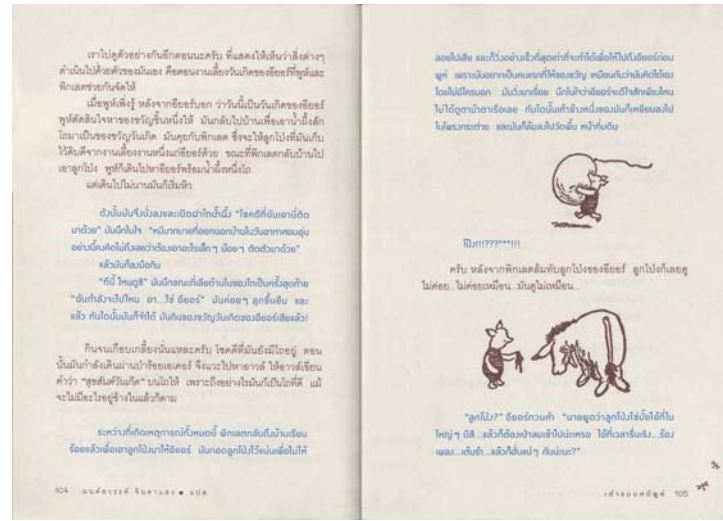 เราไปดูตัวอย่างกันอีกตอนนะครับ ที่แสดงให้เห็นว่าสิ่งต่างๆ
ดำเนินไปด้วยตัวของมันเอง คือตอนงานเลี้ยงวันเกิดของอียอร์ที่พูห์และ
พิกเลตช่วยกันจัดให้
เมื่อพูห์เพิ่งรู้ หลังจากอียอร์บอก ว่าวันนี้เป็นวันเกิดของอียอร์
พูห์ตัดสินใจหาของขวัญชิ้นหนึ่งให้ มันกลับไปบ้านเพื่อเอาน้ำผึ้งสัก
โถมาเป็นของขวัญวันเกิด มันคุยกับพิกเลต ซึ่งจะให้ลูกโป่งที่มันเก็บ
ไว้คืนดีจากงานเลี้ยงงานหนึ่งแก่อียอร์ด้วย ขณะที่พิกเลตกลับบ้านไป
เอาลูกโป่ง พูห์ก็เดินไปหาอียอร์พร้อมน้ำผึ้งหนึ่งโถ
แต่เดินไปไม่นานมันก็เริ่มหิว
ดังนั้นมันจึงนั่งลงและเปิดฝาโถน้ำผึ้ง “โชคดีที่ฉันเอานี่ติด
มาด้วย” มันนึกในใจ “หมีมากมายที่ออกนอกบ้านในวันอากาศอบอุ่น
อย่างนี้คงคิดไม่ถึงเลยว่าต้องเอาอะไรเล็กๆ น้อยๆ ติดตัวมาด้วย”
แล้วมันก็ลงมือกิน
“ทีนี้ ไหนดูซิ” มันนึกขณะที่เลียด้านในของโถเป็นครั้งสุดท้าย
“ฉันกำลังจะไปไหน อา...ใช่ อียอร์” มันค่อยๆ ลุกขึ้นยืน และ
แล้ว ทันใดนั้นมันก็จำได้ มันกินของขวัญวันเกิดของอียอร์เสียแล้ว!
กินจนเกือบเกลี้ยงนั่นแหละครับ โชคดีที่มันยังมีโถอยู่ ตอน
นั้นมันกำลังเดินผ่านป่าร้อยเอเคอร์ จึงแวะไปหาอาวล์ ให้อาวล์เขียน
คำว่า “สุขสันต์วันเกิด” บนโถให้ เพราะถึงอย่างไรมันก็เป็นโถที่ดี แม้
จะไม่มีอะไรอยู่ข้างในแล้วก็ตาม
ระหว่างที่เกิดเหตุการณ์ทั้งหมดนี้ พิกเลตกลับถึงบ้านเรียบ
ร้อยแล้วเพื่อเอาลูกโป่งมาให้อียอร์ มันกอดลูกโป่งไว้แน่นเพื่อไม่ให้
104 มนต์สวรรค์ จินดาแสง • แปล
ลอยไปเสีย และก็วิ่งอย่างเร็วที่สุดเท่าที่จะทำได้เพื่อให้ไปถึงอียอร์ก่อน
พูห์ เพราะมันอยากเป็นคนแรกที่ให้ของขวัญ เหมือนกับว่ามันคิดได้เอง
โดยไม่มีใครบอก มันวิ่งมาเรื่อย นึกในใจว่าอียอร์จะดีใจสักเพียงไหน
ไม่ได้ดูตาม้าตาเรือเลย ทันใดนั้นเท้าข้างหนึ่งของมันก็เหยียบลงไป
ในโพรงกระต่าย และมันก็ล้มลงไปวัดพื้น หน้าทิ่มดิน
โป๊ง!!!???***!!!
ครับ หลังจากพิกเลตล้มทับลูกโป่งของอียอร์ ลูกโป่งก็เลยดู
ไม่ค่อย...ไม่ค่อยเหมือน...มันดูไม่เหมือน...
“ลูกโป่ง?” อียอร์ทวนคำ “นายพูดว่าลูกโป่งใช่มั้ยไอ้ที่ใบ
ใหญ่ๆ มีสี...แล้วก็ต้องเป่าลมเข้าไปน่ะเหรอ ไอ้ที่เวลารื่นเริง...ร้อง
เพลง...เต้นรำ...แล้วก็ฮั่นแน่ๆ กันน่ะนะ?”
เต๋าแบบหมีพูห์ 105